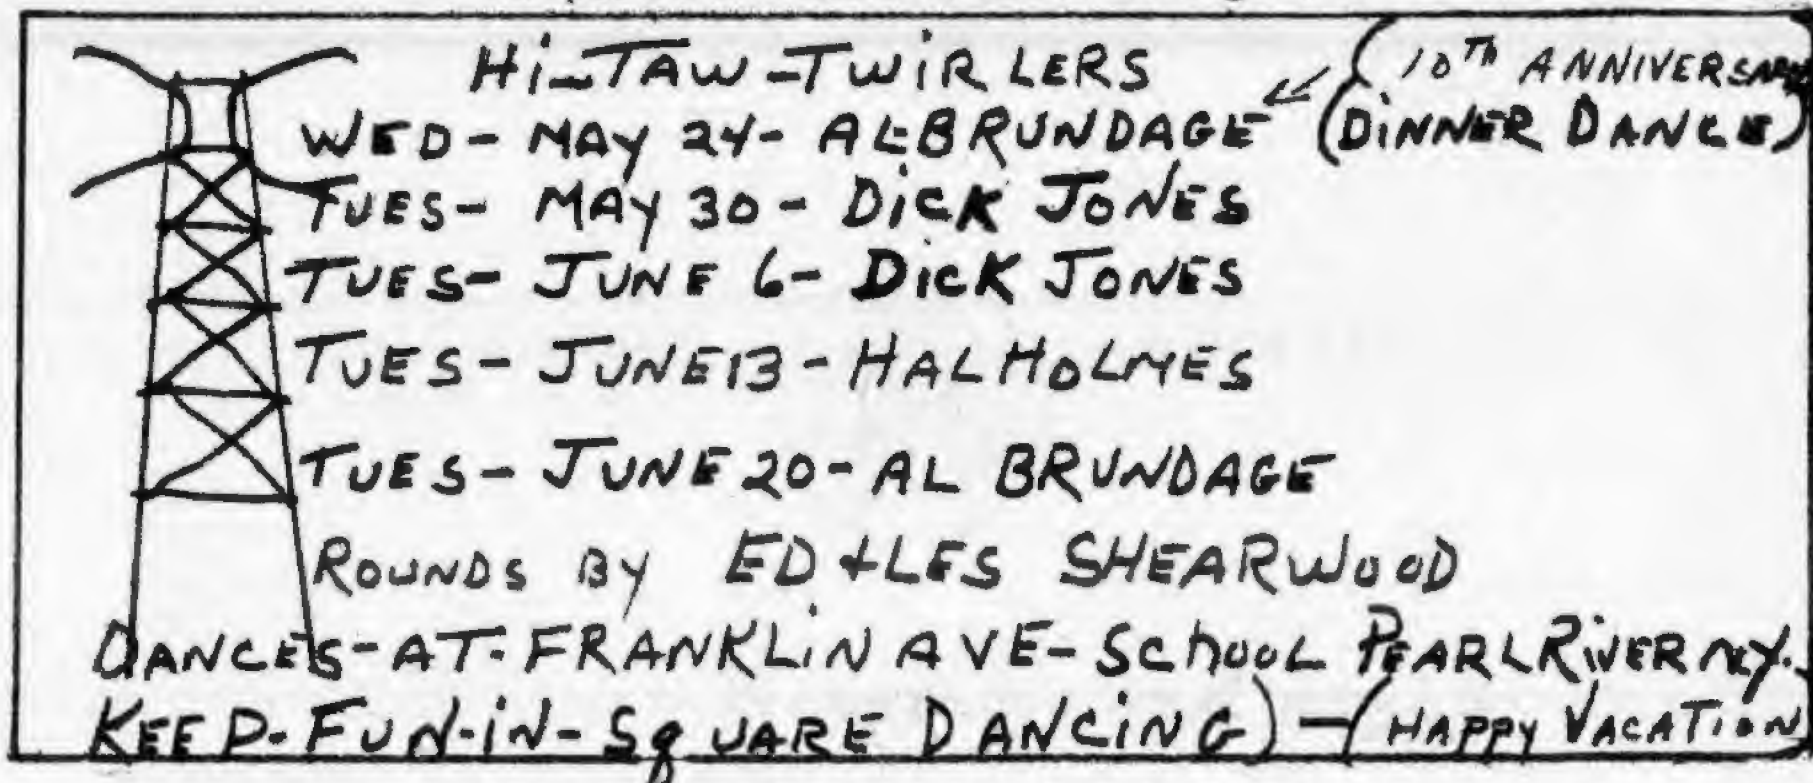 Hi-TAW-TWiRLERS
10TH ANNIVERSARY
WED- MAY 24- AL BRUNDAGE (DiNNER DANCE)
TUES- MAY 30- DiCK JONES
TUES- JUNE 6- DicK JONES
TUES- JUNE 13- HAL HOLMES
TUES- JUNE 20- AL BRUNDAGE
ROUNDS By ED & LES SHEARWOOD
DANCES-AT-FRANKLiN AVE- SchooL PEARL RiVER N.Y.
KEEP-FUN-iN-SqUARE DANCiNG) - (HAPPY VACATION)